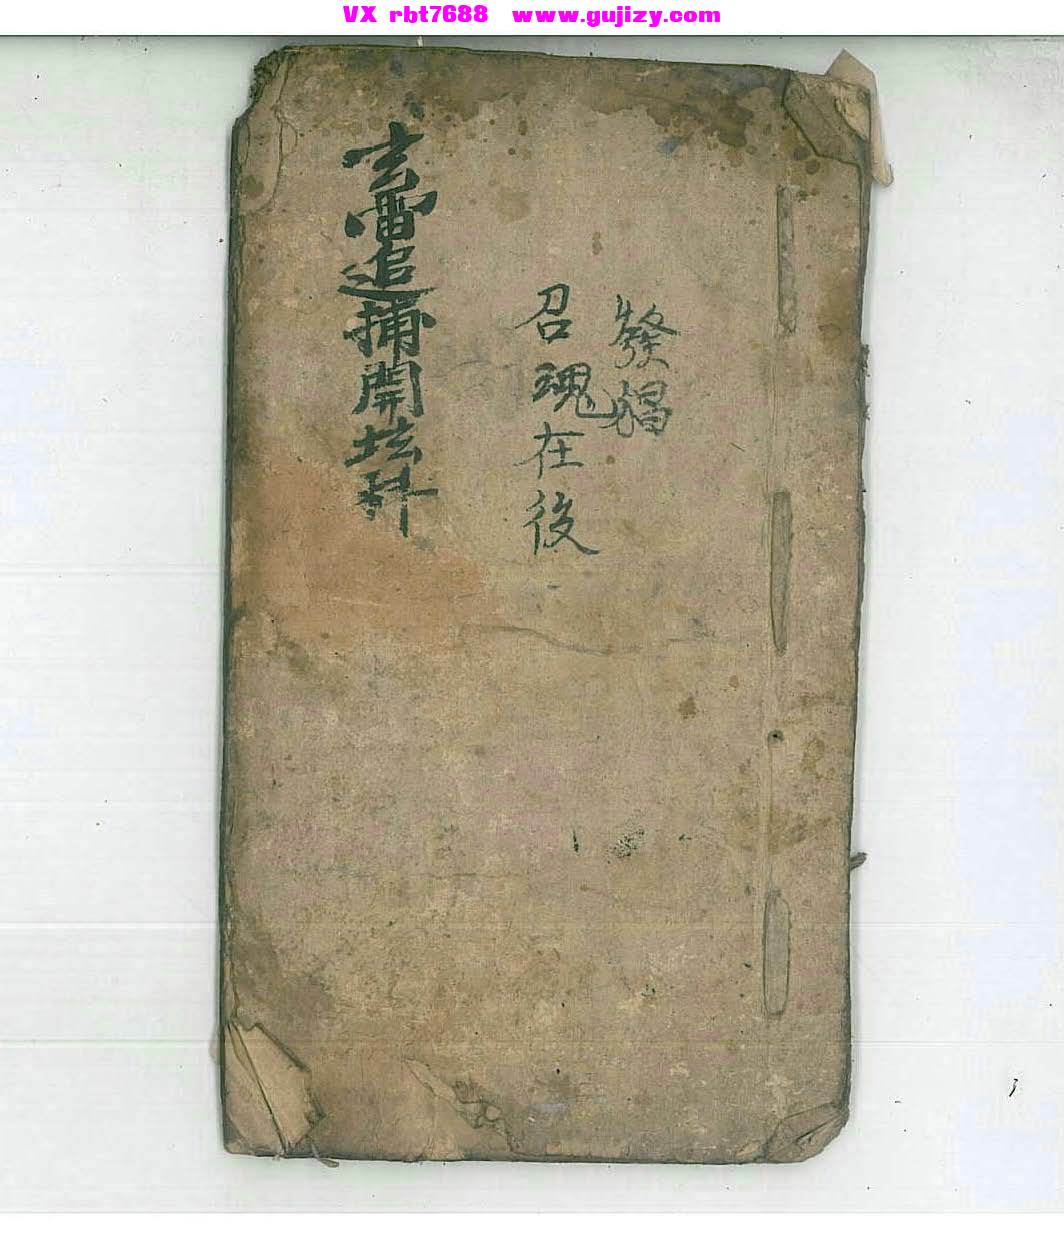 VX rbt7688 www.gujizy.com
發猖
召魂在後
玄雷追捕開坛科